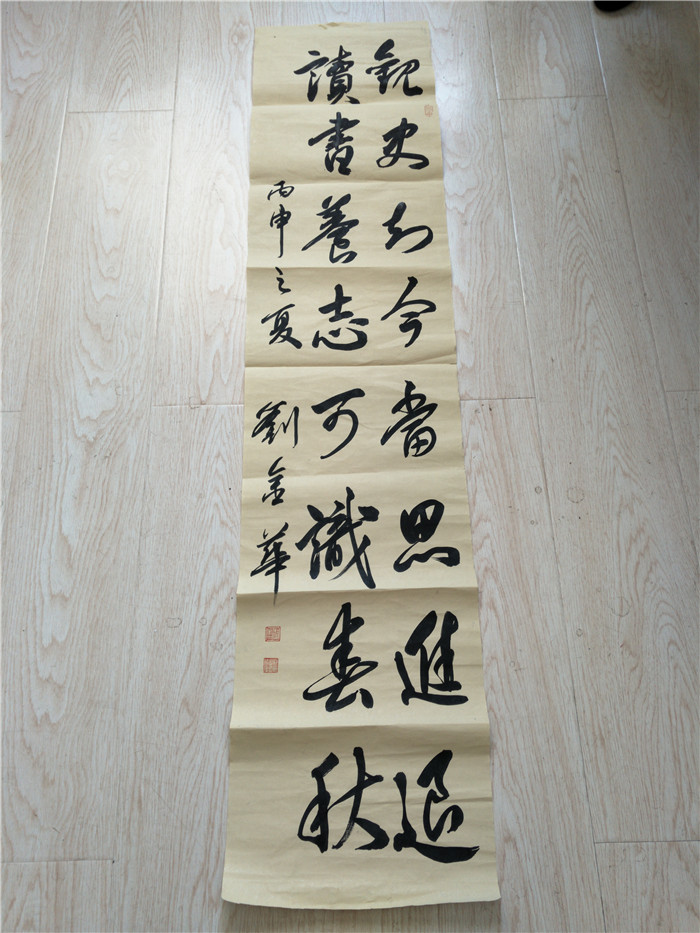 觀史知今當思進退
讀書養志可識春秋
丙申之夏
劉金華